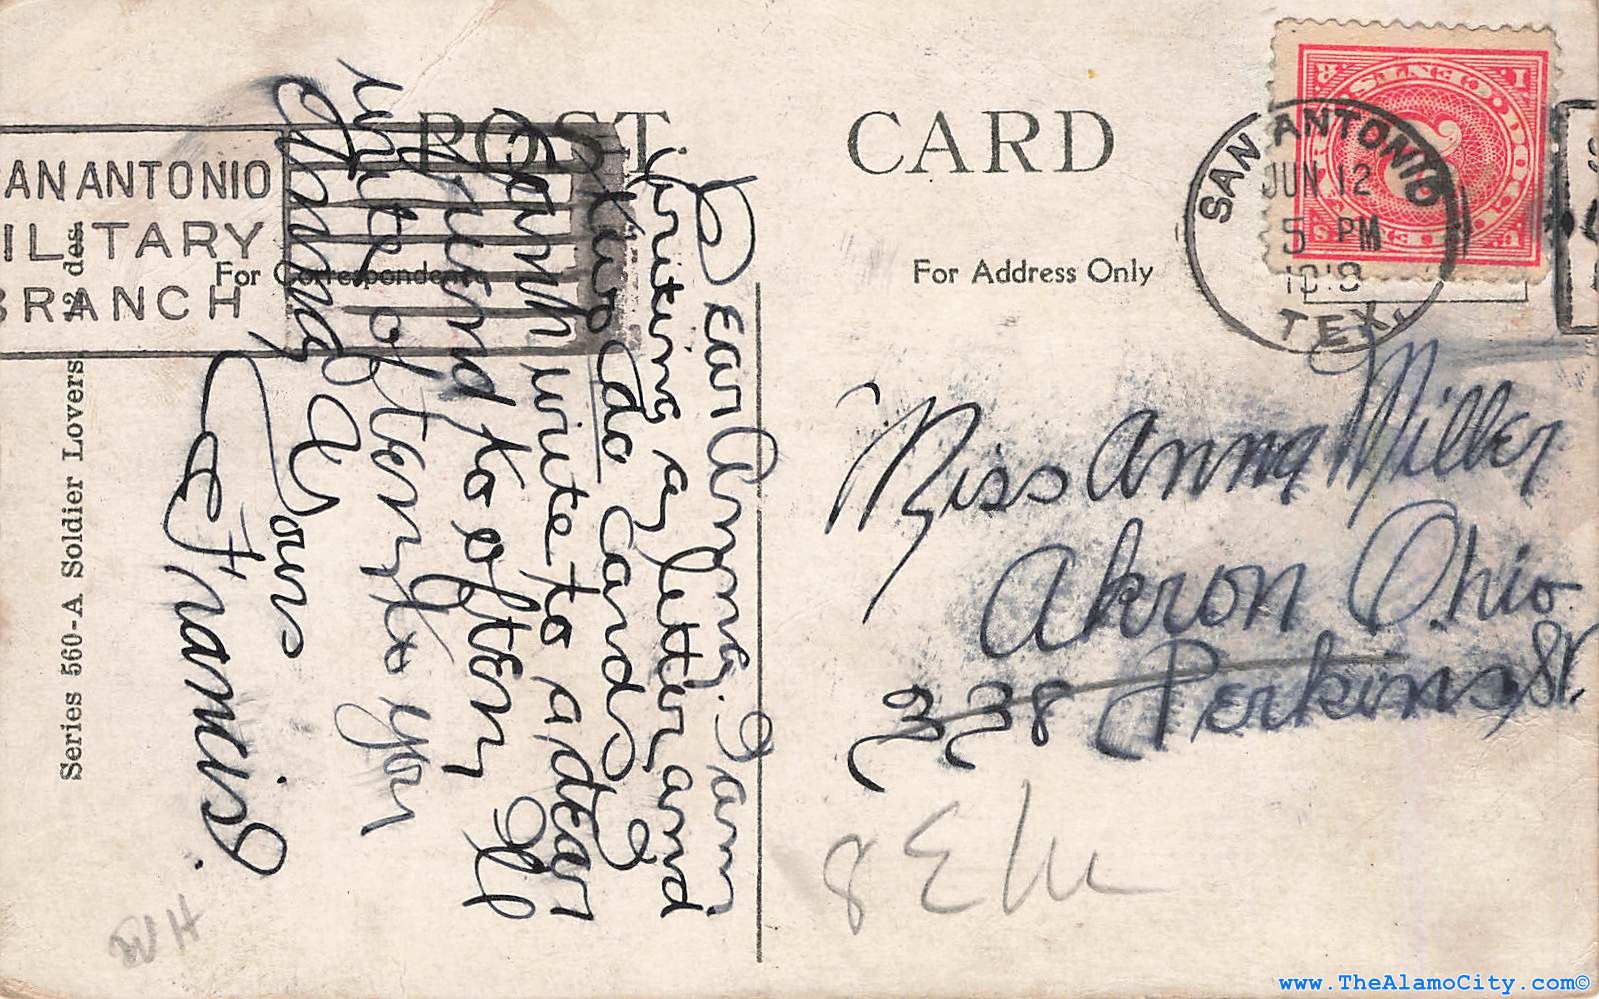 POST CARD
For Correspondence
For Address Only
Series 560-A Soldier Lovers 2 des.
AN ANTONIO
ILITARY
BRANCH
SAN ANTONIO
JUN 12
5 PM
1918
TEX.
Dear Anna. I am
writing a letter and
two cards
can't write to a dear
friend to often Ill
write often to you
Yours
Francis.
Miss Anna Miller
Akron Ohio
238 Perkins St.
8 E M
WH
www.TheAlamoCity.com©